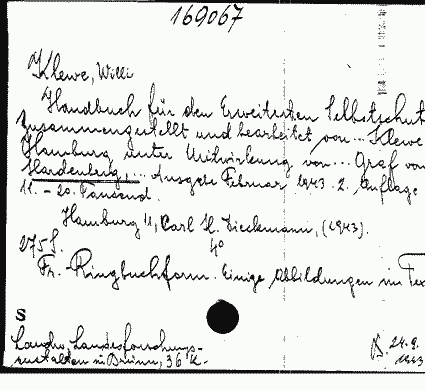 169067
Klewe, Willi
Handbuch für den Erweiterten Selbstschut
Zusammengestellt und bearbeitet von... Klewe
Hamburg unter Mitwirkung von... Graf von
Hardenberg,... Ausgabe Februar 1943. 2. Auflage
11. - 20. Tausend.
Hamburg 11, Carl H. Dieckmann, (1943).
275 S. 4°
Fr.-Ringbuchform. Einige Abbildungen im Tex
S
Landesforschungs-
anstalten in Brünn, 36 K.
24.9.
1943